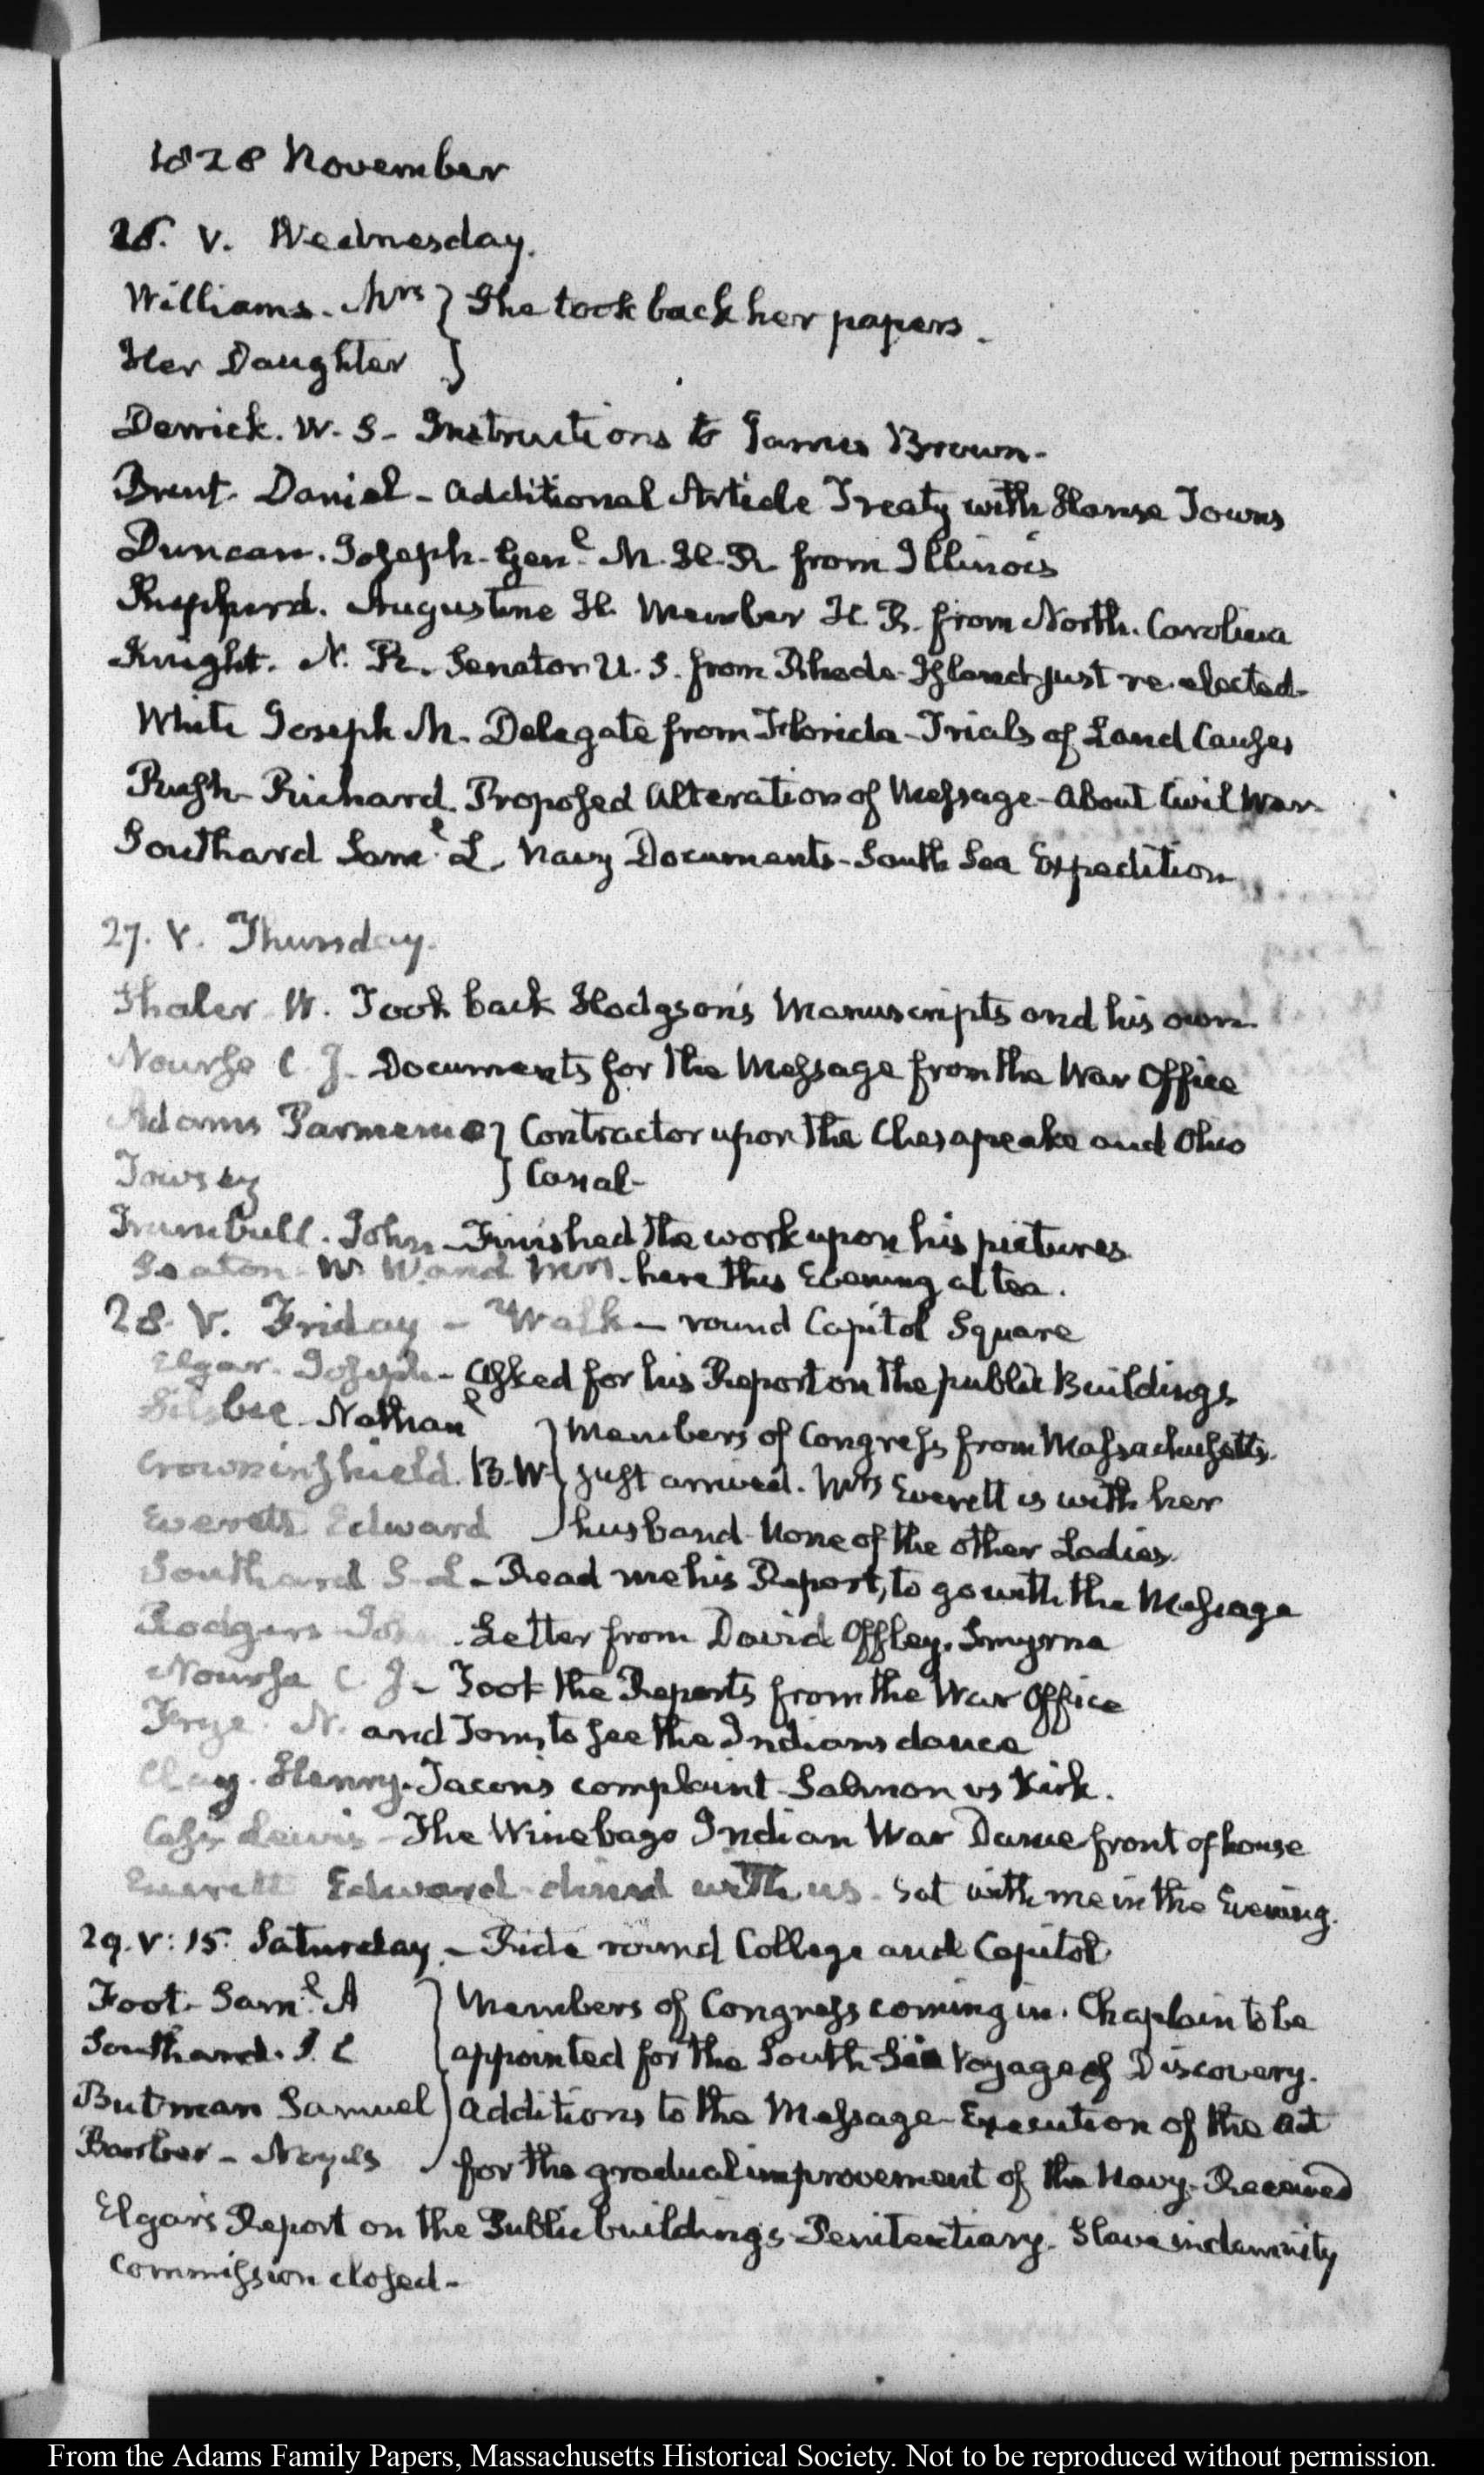 1828 November
26. V. Wednesday.
Williams. Mrs } She took back her papers.
Her Daughter }
Derrick. W. S - Instructions to James Brown -
Brent. Daniel - Additional Article Treaty with Hanse Towns
Duncan. Joseph - Genl. M. H. R. from Illinois
Shepherd. Augustine H. Member H. R. from North. Carolina
Knight. N. R. Senator U. S. from Rhode-Island just re-elected.
White Joseph M. Delegate from Florida - Trials of Land Causes
Rush Richard. Proposed Alteration of Message - About Civil War
Southard Saml. L. Navy Documents - South Sea Expedition
27. V. Thursday.
Shaler W. Took back Hodgson's Manuscripts and his own.
Nourse C. J. Documents for the Message from the War Office
Adams Parmenio } Contractor upon the Chesapeake and Ohio
Towsey } Canal -
Trumbull. John - Finished the work upon his pictures.
Seaton W W and Mrs. here this Evening at tea.
28. V. Friday - Walk - round Capitol Square
Elgar. Joseph - Asked for his Report on the public Buildings
Silsbee Nathanl } Members of Congress from Massachusetts.
Crowninshield. B. W } just arrived. Mrs Everett is with her
Everett Edward } husband - None of the other Ladies.
Southard S. L - Read me his Report, to go with the Message
Rodgers John. Letter from David Offley. Smyrna
Nourse C. J - Took the Reports from the War Office
Frye. N. and Tom, to see the Indians dance
Clay. Henry. Tacon's complaint - Salmon vs Kirk.
Cass Lewis - The Winebago Indian War Dance front of house
Everett Edward - dined with us - Sat with me in the Evening.
29. V: 15. Saturday. - Ride round College and Capitol
Foot - Saml. A } Members of Congress coming in. Chaplain to be
Southard. S. L } appointed for the South Sea Voyage of Discovery.
Butman Samuel } Additions to the Message - Execution of the Act
Barber - Noyes } for the gradual improvement of the Navy - Received
Elgar's Report on the Public buildings - Penitentiary - Slave indemnity
Commission closed -
From the Adams Family Papers, Massachusetts Historical Society. Not to be reproduced without permission.